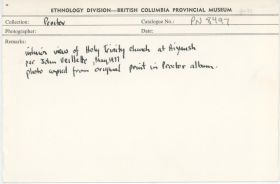 ETHNOLOGY DIVISION—BRITISH COLUMBIA PROVINCIAL MUSEUM
Collection: Proctor Catalogue No.: PN 8497
Photographer: Date:
Remarks:
interior view of Holy Trinity church at Aiyansh
per John Veillette, May, 1977
photo copied from original print in Proctor album.